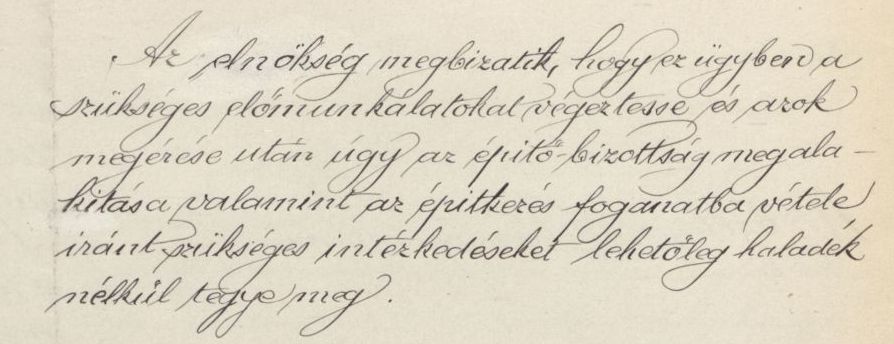 Az elnökség megbizatik, hogy ez ügyben a
szükséges előmunkálatokat végeztesse és azok
megérése után úgy az épitő-bizottság megala-
kitása valamint az épitkezés foganatba vétele
iránt szükséges intézkedéseket lehetőleg haladék
nélkül tegye meg.